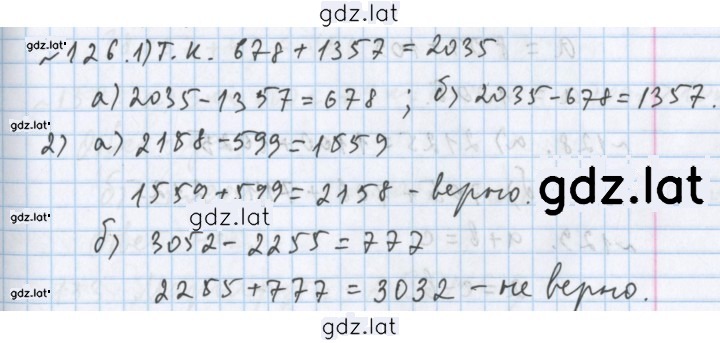 gdz.lat
gdz.lat
№126.1) Т.к. 678 + 1357 = 2035
а) 2035 - 1357 = 678 ; б) 2035 - 678 = 1357.
gdz.lat
2) а) 2158 - 599 = 1559
1559 + 599 = 2158 - верно.
gdz.lat
gdz.lat
gdz.lat
б) 3052 - 2255 = 777
2255 + 777 = 3032 - не верно.
gdz.lat
gdz.lat